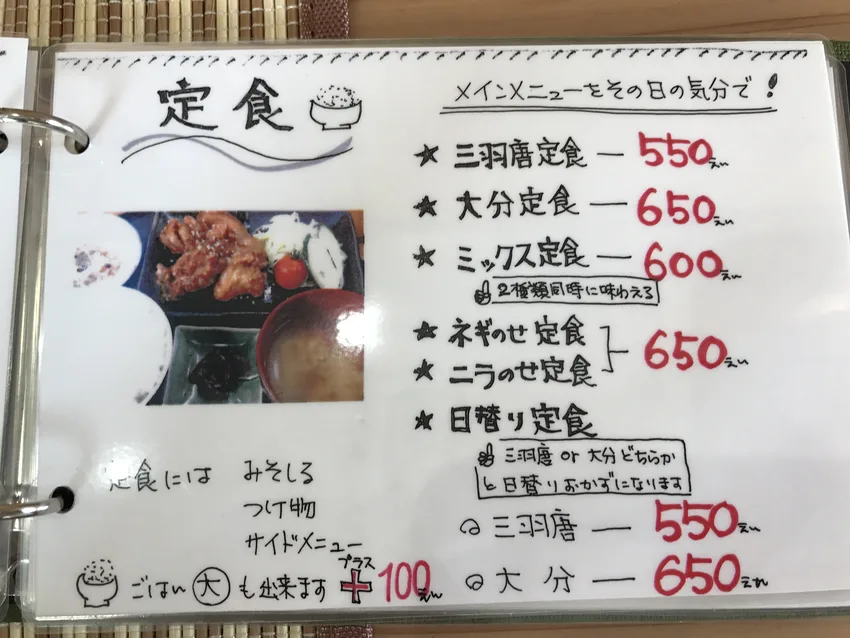 定食
メインメニューをその日の気分で!
★ 三羽唐定食 — 550えん
★ 大分定食 — 650えん
★ ミックス定食 — 600えん
2種類同時に味わえる
★ ネギのせ定食
★ ニラのせ定食
650えん
★ 日替り定食
三羽唐 or 大分どちらか
と日替りおかずになります
三羽唐 — 550えん
大分 — 650えん
定食には みそしる
つけ物
サイドメニュー
ごはん大も出来ます プラス+100えん